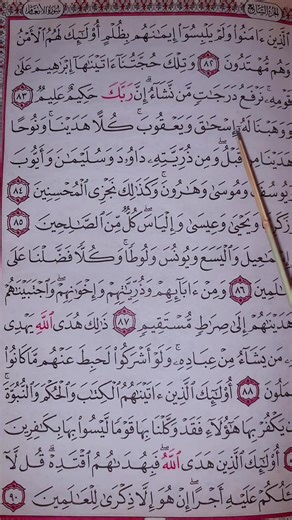 الجزء السابع سورة الأنعام
الَّذِينَ ءَامَنُوا۟ وَلَمْ يَلْبِسُوٓا۟ إِيمَٰنَهُم بِظُلْمٍ أُو۟لَٰٓئِكَ لَهُمُ ٱلْأَمْنُ
وَهُم مُّهْتَدُونَ ٨٢ وَتِلْكَ حُجَّتُنَآ ءَاتَيْنَٰهَآ إِبْرَٰهِيمَ عَلَىٰ
قَوْمِهِۦ ۚ نَرْفَعُ دَرَجَٰتٍ مَّن نَّشَآءُ ۗ إِنَّ رَبَّكَ حَكِيمٌ عَلِيمٌ ٨٣
وَوَهَبْنَا لَهُۥٓ إِسْحَٰقَ وَيَعْقُوبَ ۚ كُلًّا هَدَيْنَا ۚ وَنُوحًا
هَدَيْنَا مِن قَبْلُ ۖ وَمِن ذُرِّيَّتِهِۦ دَاوُۥدَ وَسُلَيْمَٰنَ وَأَيُّوبَ
يُوسُفَ وَمُوسَىٰ وَهَٰرُونَ ۚ وَكَذَٰلِكَ نَجْزِى ٱلْمُحْسِنِينَ ٨٤
زَكَرِيَّا وَيَحْيَىٰ وَعِيسَىٰ وَإِلْيَاسَ ۖ كُلٌّ مِّنَ ٱلصَّٰلِحِينَ ٨٥
إِسْمَٰعِيلَ وَٱلْيَسَعَ وَيُونُسَ وَلُوطًا ۚ وَكُلًّا فَضَّلْنَا عَلَى
ٱلْعَٰلَمِينَ ٨٦ وَمِنْ ءَابَآئِهِمْ وَذُرِّيَّٰتِهِمْ وَإِخْوَٰنِهِمْ ۖ وَٱجْتَبَيْنَٰهُمْ
هَدَيْنَٰهُمْ إِلَىٰ صِرَٰطٍ مُّسْتَقِيمٍ ٨٧ ذَٰلِكَ هُدَى ٱللَّهِ يَهْدِى
مَن يَشَآءُ مِنْ عِبَادِهِۦ ۚ وَلَوْ أَشْرَكُوا۟ لَحَبِطَ عَنْهُم مَّا كَانُوا۟
يَعْمَلُونَ ٨٨ أُو۟لَٰٓئِكَ ٱلَّذِينَ ءَاتَيْنَٰهُمُ ٱلْكِتَٰبَ وَٱلْحُكْمَ وَٱلنُّبُوَّةَ ۚ
يَكْفُرْ بِهَا هَٰٓؤُلَآءِ فَقَدْ وَكَّلْنَا بِهَا قَوْمًا لَّيْسُوا۟ بِهَا بِكَٰفِرِينَ
أُو۟لَٰٓئِكَ ٱلَّذِينَ هَدَى ٱللَّهُ ۖ فَبِهُدَىٰهُمُ ٱقْتَدِهْ ۗ قُل لَّآ
أَسْـَٔلُكُمْ عَلَيْهِ أَجْرًا ۖ إِنْ هُوَ إِلَّا ذِكْرَىٰ لِلْعَٰلَمِينَ ٩٠